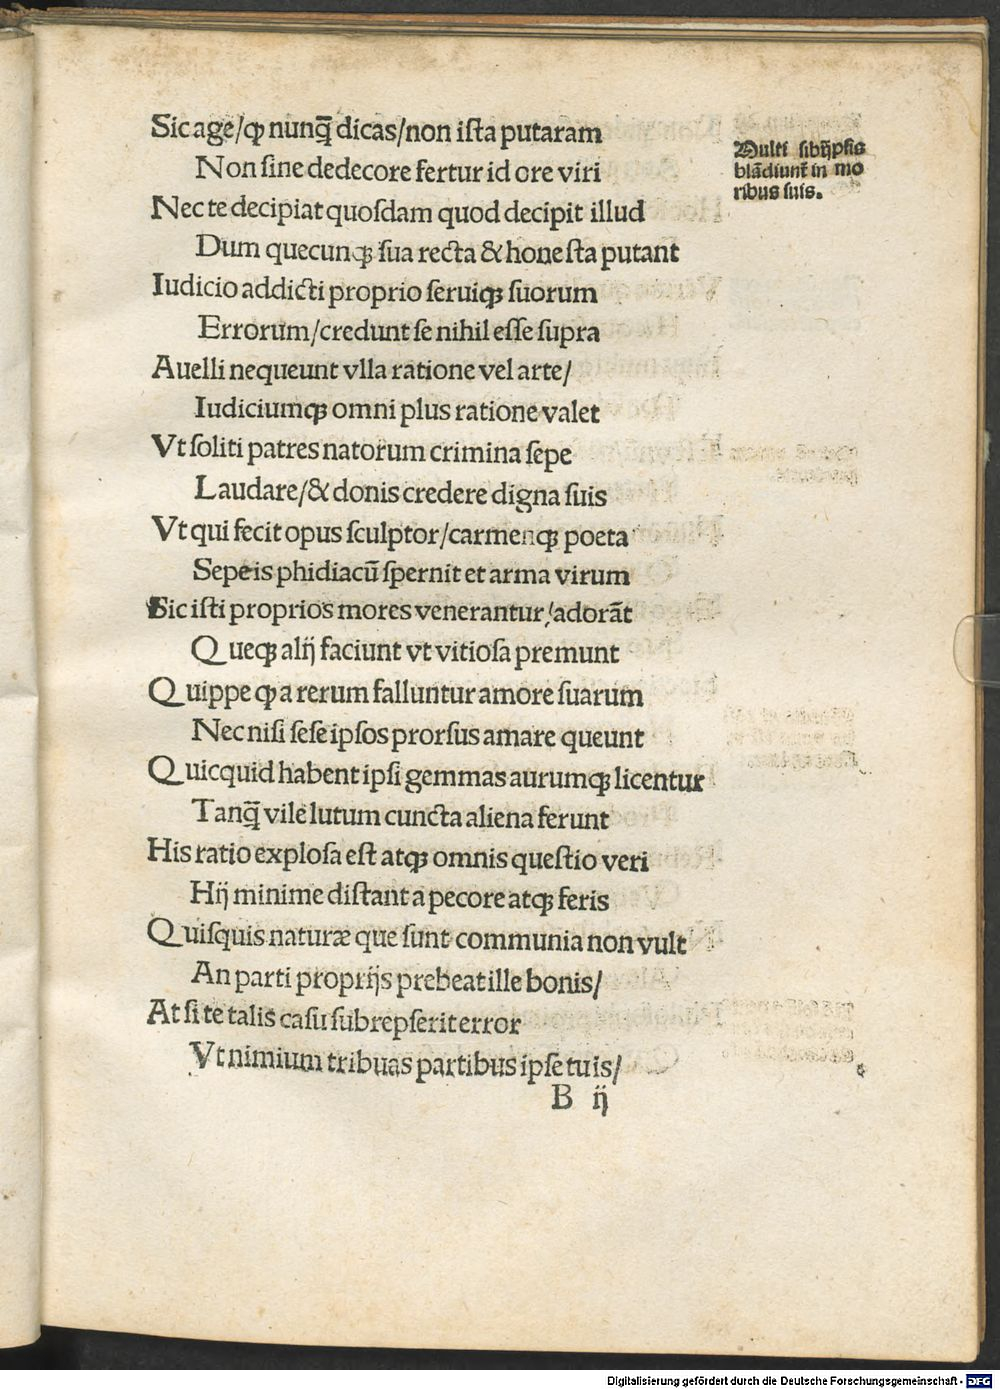 Sic age/ꝙ nunq̄ dicas/non iſta putaram
Non ſine dedecore fertur id ore viri
Nec te decipiat quoſdam quod decipit illud
Dum quecunqꝫ ſua recta & honeſta putant
Iudicio addicti proprio ſeruiqꝫ ſuorum
Errorum/credunt ſe nihil eſſe ſupra
Auelli nequeunt vlla ratione vel arte/
Iudiciumqꝫ omni plus ratione valet
Vt ſoliti patres natorum crimina ſepe
Laudare/& donis credere digna ſuis
Vt qui fecit opus ſculptor/carmenqꝫ poeta
Sepe is phidiacū ſpernit et arma virum
Sic iſti proprios mores venerantur/adorāt
Queqꝫ alij faciunt vt vitioſa premunt
Quippe ꝙ a rerum falluntur amore ſuarum
Nec niſi ſeſe ipſos prorſus amare queunt
Quicquid habent ipſi gemmas aurumqꝫ licentur
Tanq̄ vile lutum cuncta aliena ferunt
His ratio exploſa eſt atqꝫ omnis queſtio veri
Hij minime diſtant a pecore atqꝫ feris
Quiſquis naturæ que ſunt communia non vult
An parti proprijs prebeat ille bonis/
At ſi te talis caſu ſubrepſerit error
Vt nimium tribuas partibus ipſe tuis/
B ij
Multi ſibijpſis
blādiunt̄ in mo
ribus ſuis.
Digitalisierung gefördert durch die Deutsche Forschungsgemeinschaft - DFG